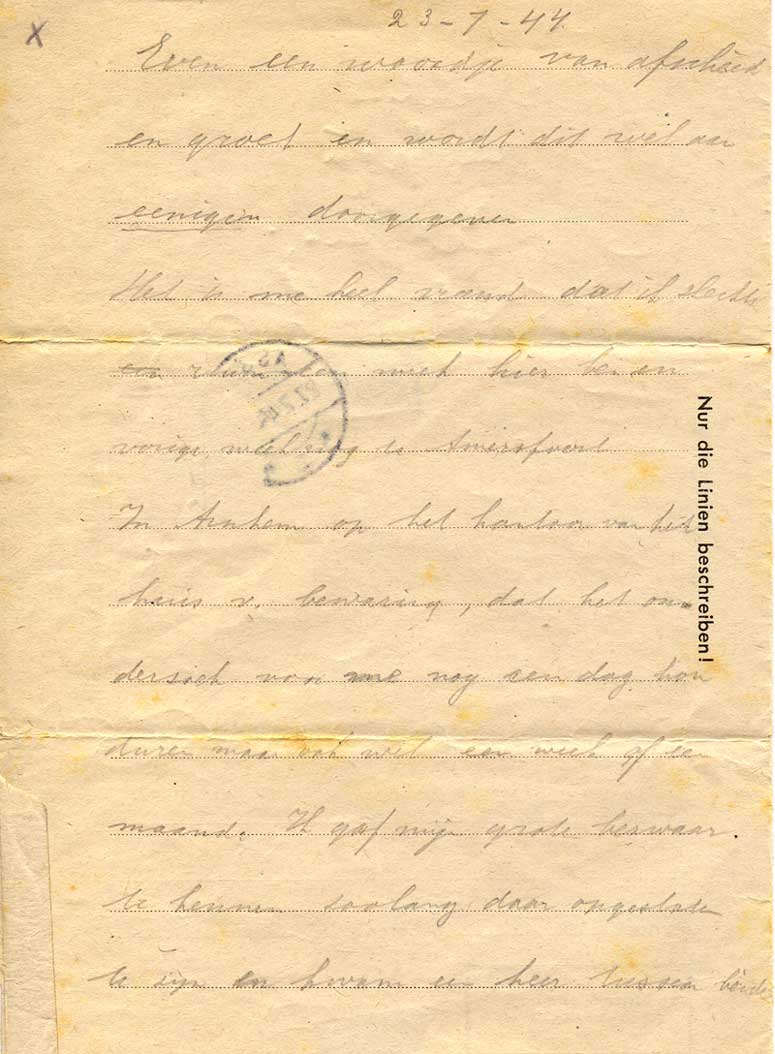 23-7-44
X
Even een woordje van afscheid
en groet en wordt dit wel aan
eenigen doorgegeven
Het is me heel vreemd dat ik slechts
ruim een week hier ben en
vorige week nog te Amersfoort
In Arnhem op het kantoor van het
huis v. bewaring, dat het on-
derzoek voor me nog een dag kon
duren maar ook wel een week of een
maand. Ik gaf mijn grote bezwaar
te kennen zoolang daar opgesloten
te zijn en kwam een heer tussen beide
Nur die Linien beschreiben!